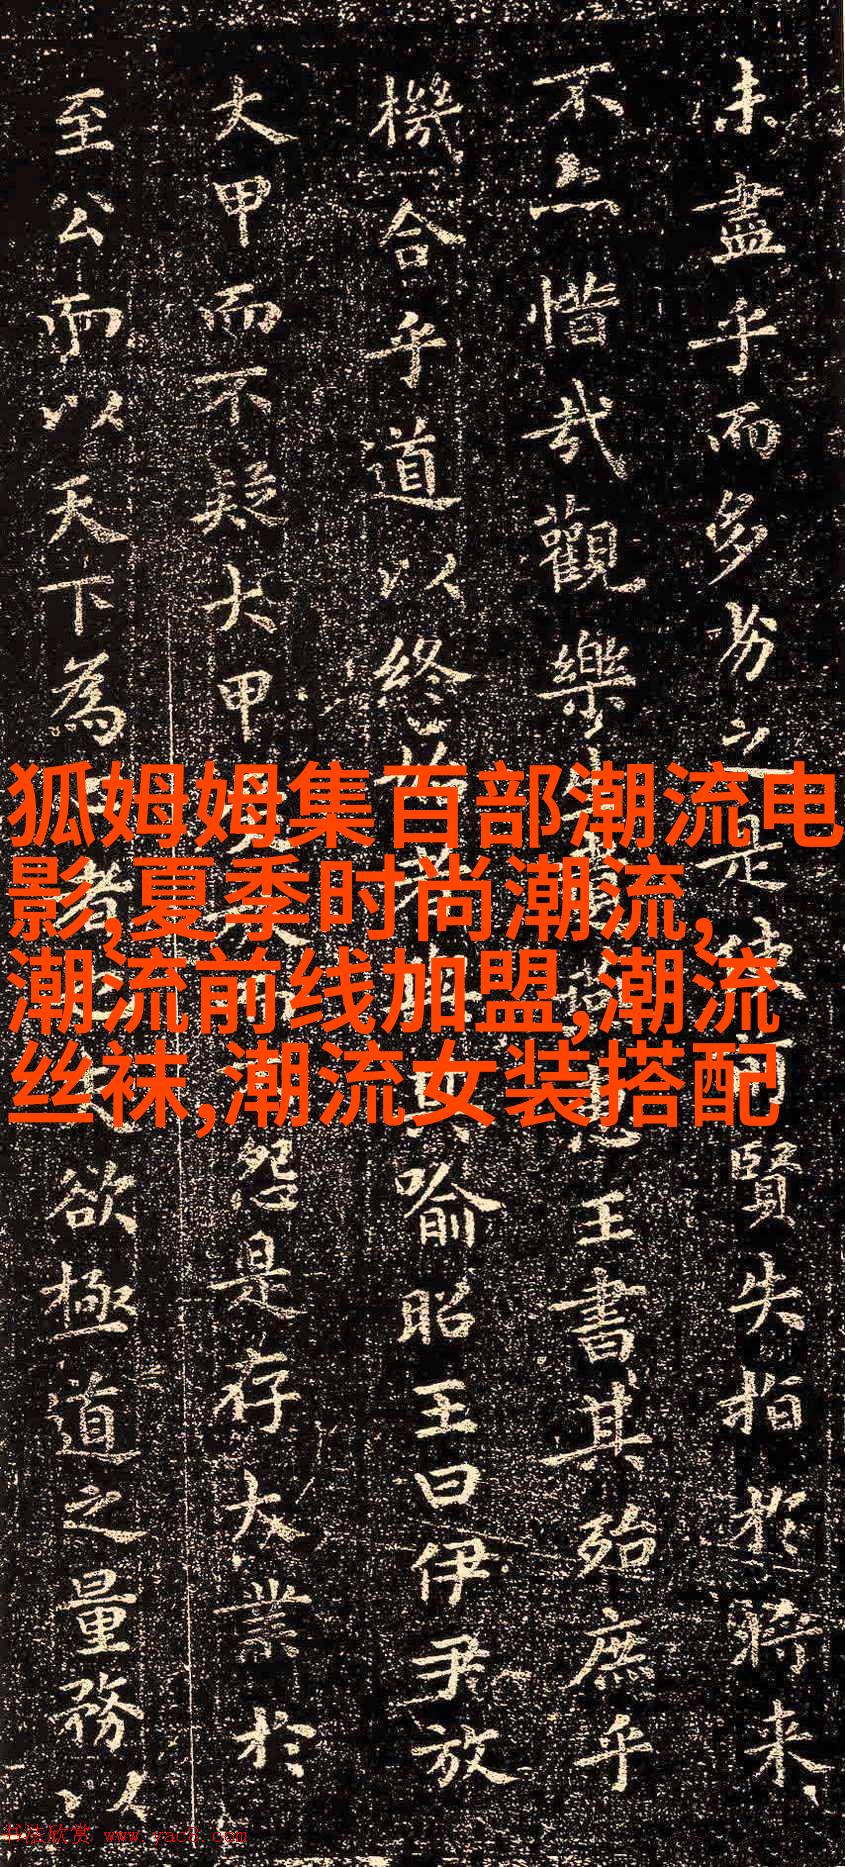 未盡乎而多劣之是使賢失指於將来
不亦惜哉觀樂王書其殆庶乎
機合乎道以終喻昭王曰伊尹放
大甲而不疑大甲怨是存大業於
至公而以天下為者欲極道之量務以
狐姆姆集百部潮流电
影,夏季时尚潮流,
潮流前线加盟,潮流
丝袜,潮流女装搭配
书法欣赏 www.yac8.com